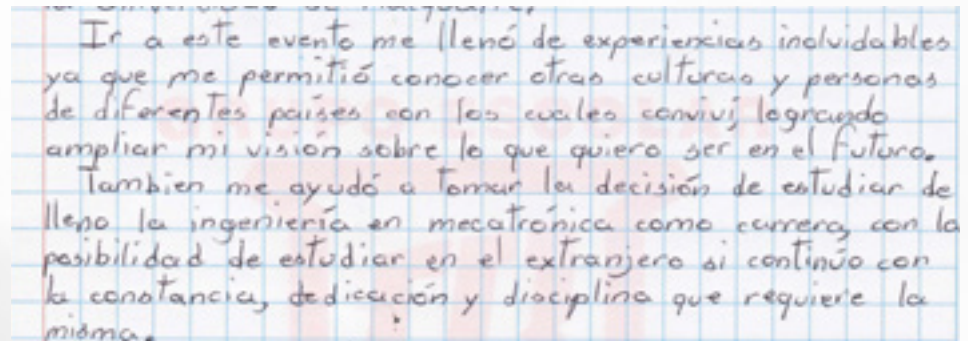 la Universidad de Macquarie.
Ir a este evento me llenó de experiencias inolvidables
ya que me permitió conocer otras culturas y personas
de diferentes países con los cuales conviví, logrando
ampliar mi visión sobre lo que quiero ser en el futuro.
Tambien me ayudó a tomar la decisión de estudiar de
lleno la ingeniería en mecatrónica como carrera, con la
posibilidad de estudiar en el extranjero si continúo con
la constancia, dedicación y disciplina que requiere la
misma.